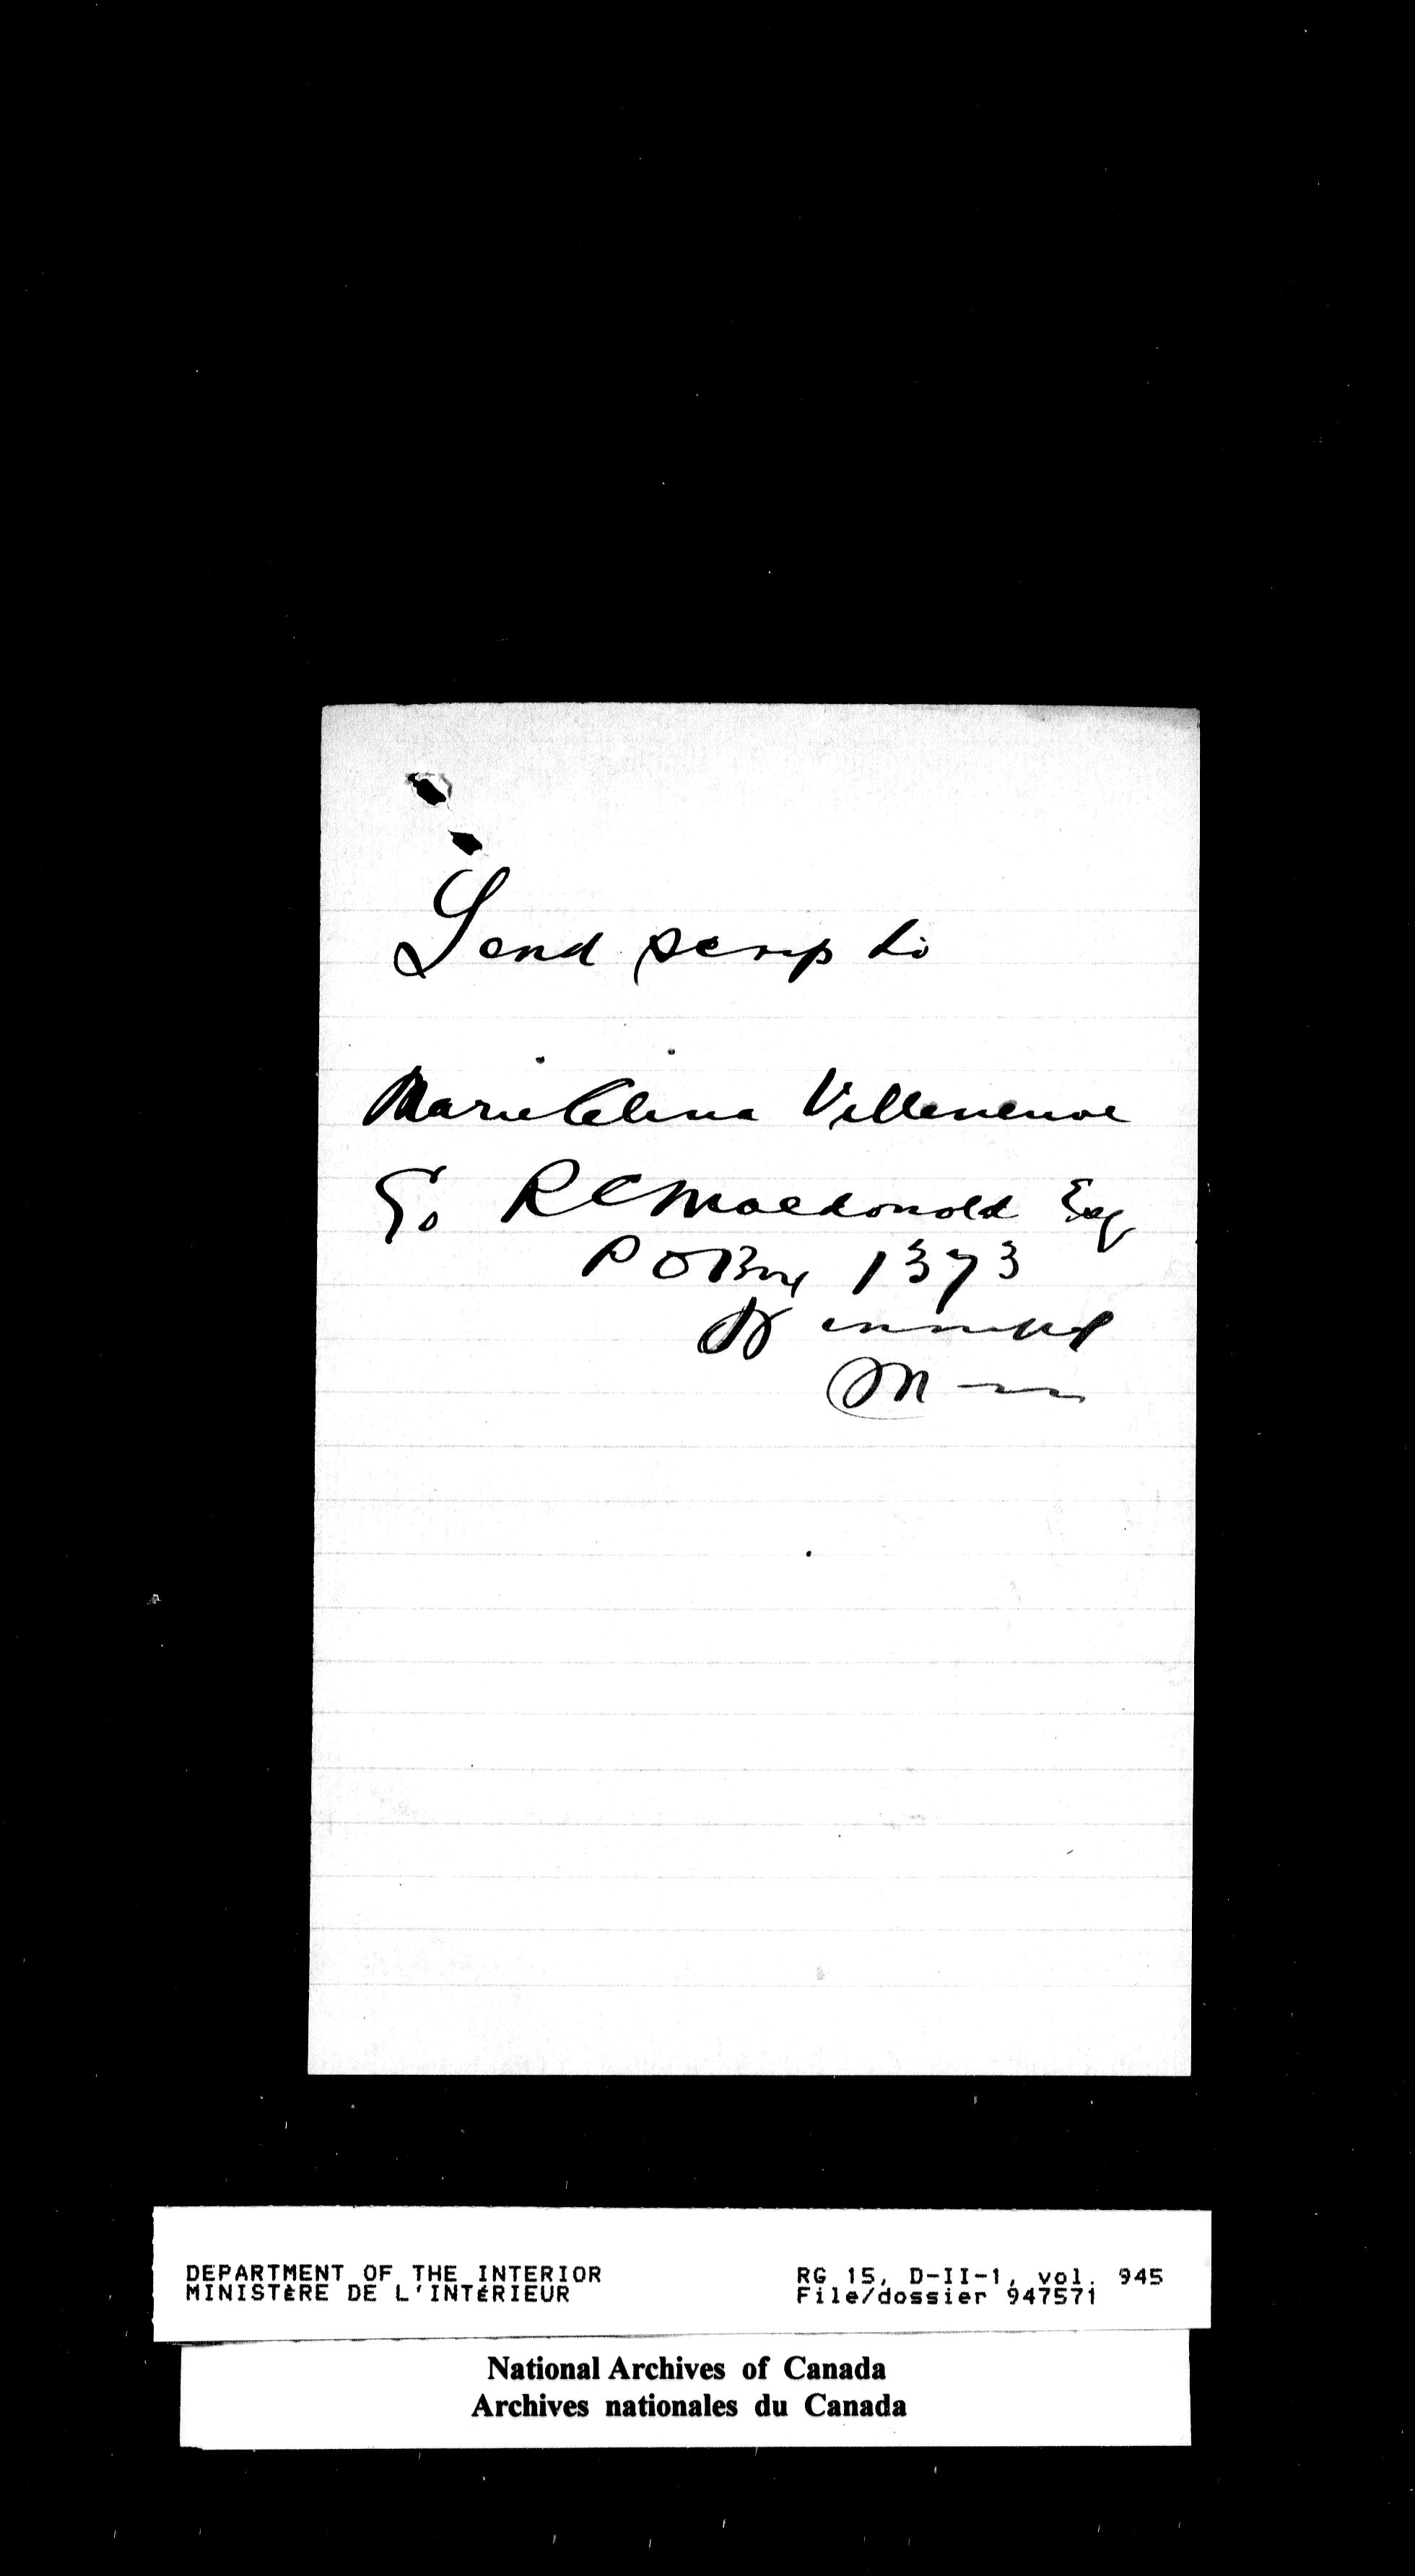 Send scrip to
Marie Celina Villeneuve
c/o R C Macdonald Esq
P O Box 1373
Winnipeg
Man
DEPARTMENT OF THE INTERIOR
MINISTÈRE DE L'INTÉRIEUR
RG 15, D-II-1, vol. 945
File/dossier 947571
National Archives of Canada
Archives nationales du Canada